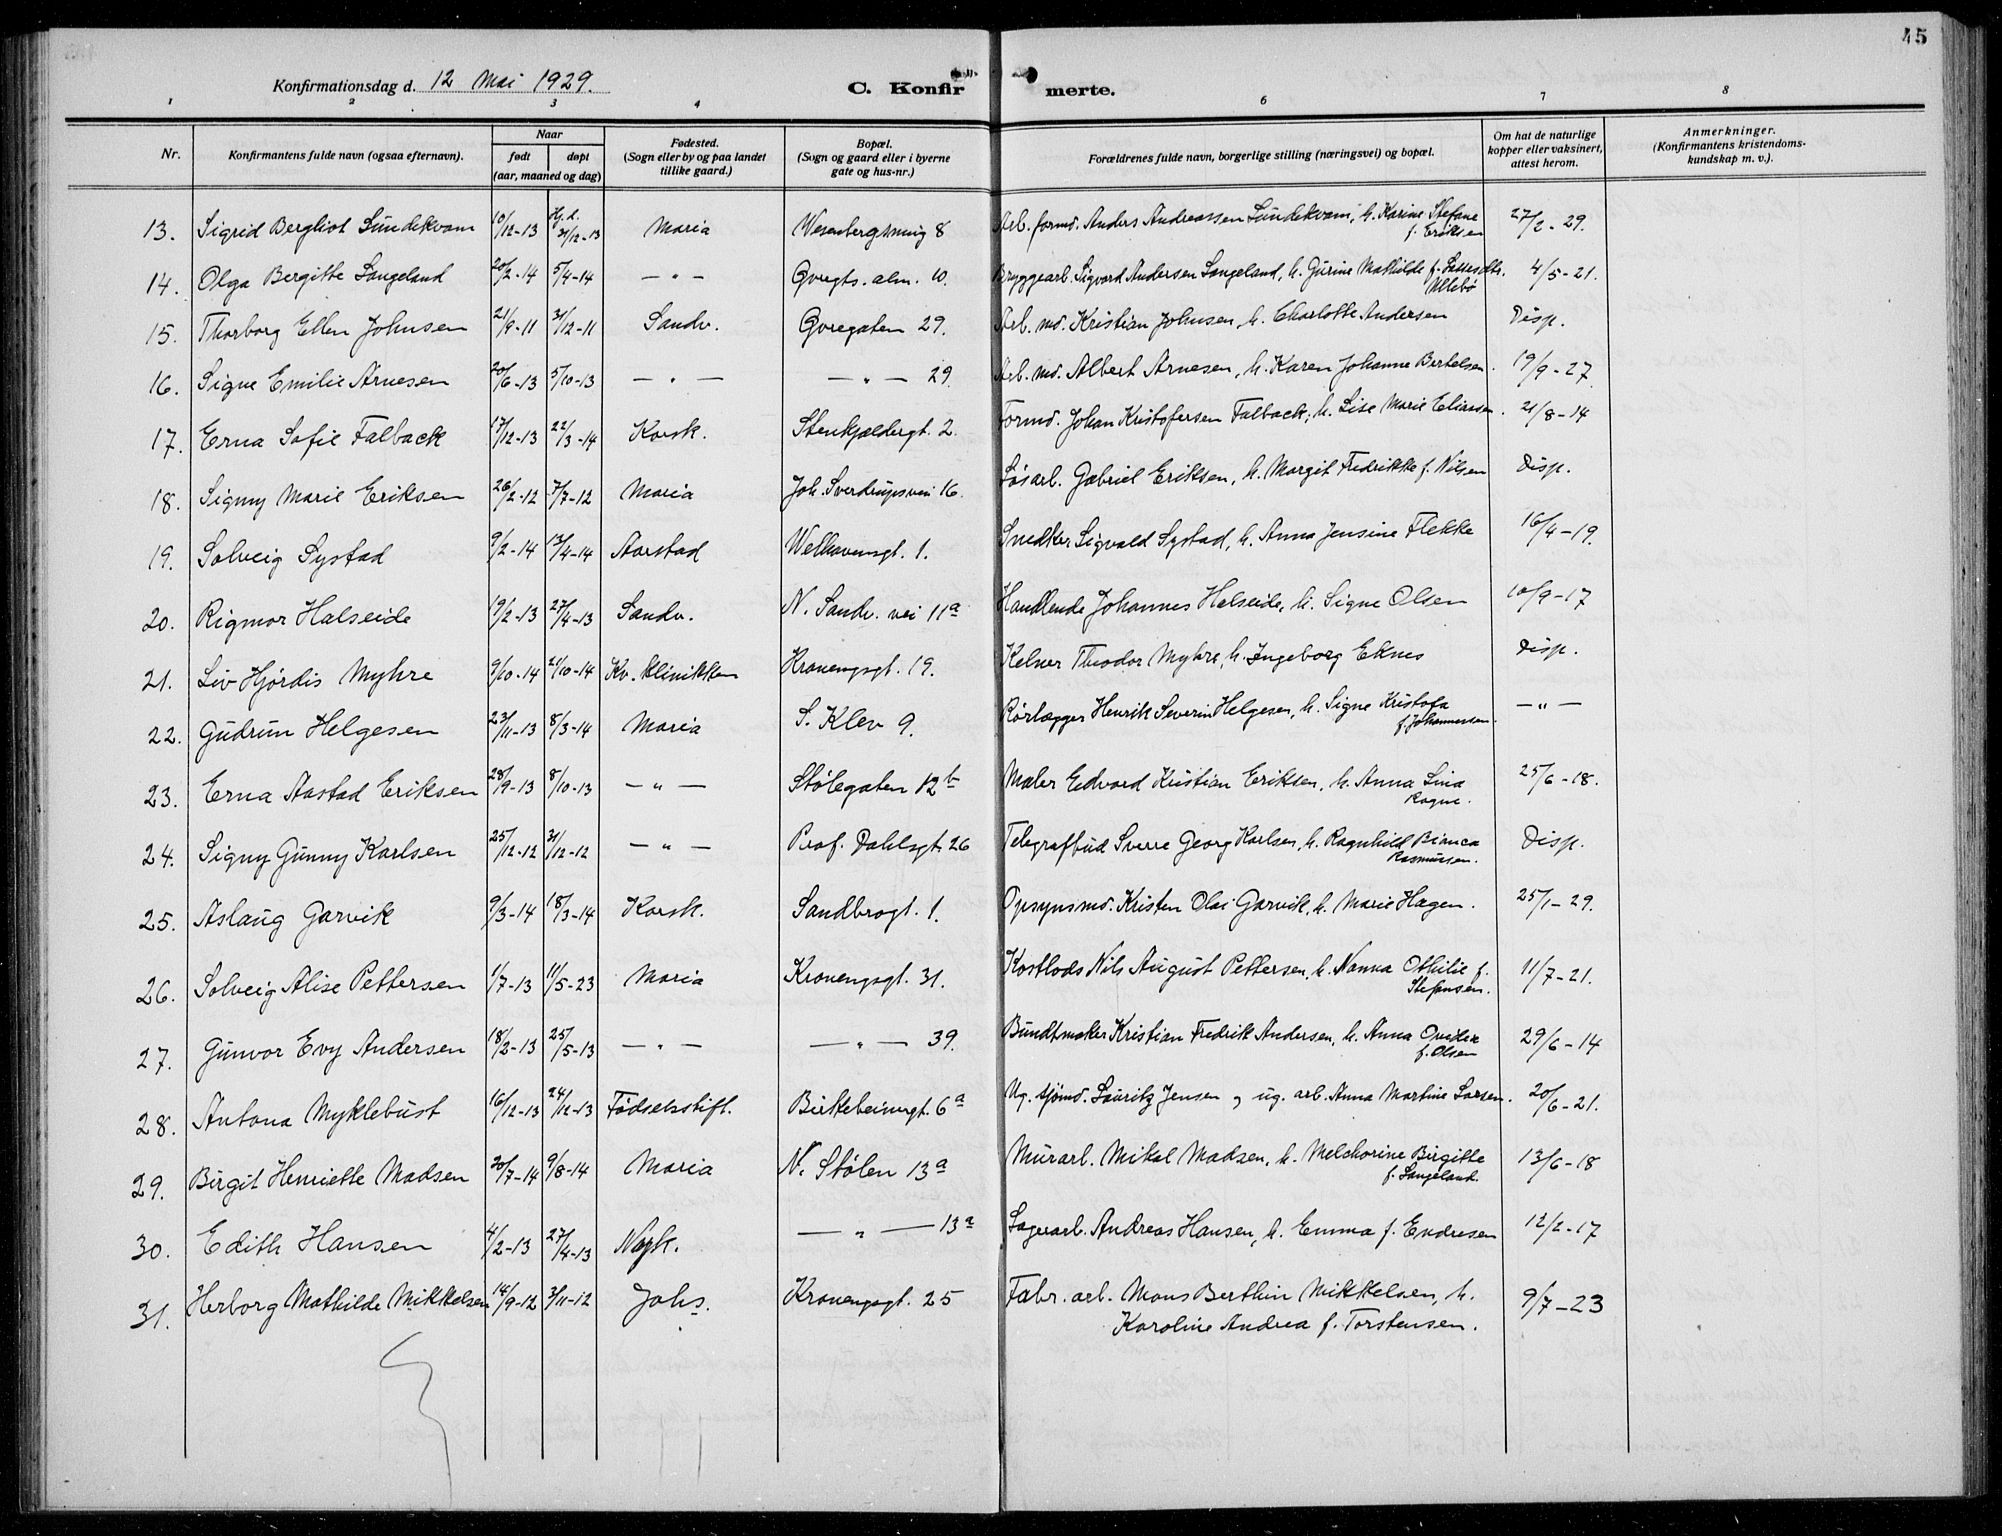 45
Konfirmationsdag d. 12 Mai 1929.
C. Konfirmerte.
1 2 3 4 6 7 8
Nr. Konfirmantens fulde navn (ogsaa efternavn). Naar født døpt (aar, maaned og dag) Fødested. (Sogn eller by og paa landet tillike gaard.) Bopæl. (Sogn og gaard eller i byerne gate og hus-nr.) Forældrenes fulde navn, borgerlige stilling (næringsvei) og bopæl. Om hat de naturlige kopper eller vaksinert, attest herom. Anmerkninger. (Konfirmantens kristendoms-kundskap m. v.).
13. Sigrid Bergliot Sundekvam 10/12-13 Hj. d. 31/12-13 Maria Wesenbergsmug 8 Arb. formd. Anders Andreassen Sundekvam, h. Karine Stefane f. Eriksen 27/2-29.
14. Olga Bergitte Langeland 20/2-14 5/4-14 — " — Øvregts. alm. 10. Bryggearb. Sigvard Andersen Langeland, h. Gurine Mathilde f. Lassesdtr. Ullebø 4/5-21.
15. Thorborg Ellen Johnsen 21/9-11 31/12-11 Sandv. Øvregaten 29. Arb. md. Kristian Johnsen, h. Charlotte Andersen Disp.
16. Signe Emilie Arnesen 20/6-13 5/10-13 — " — — " — 29. Arb. md. Albert Arnesen, h. Karen Johanne Bertelsen. 19/9-27.
17. Erna Sofie Falback 17/12-13 22/3-14 Korsk. Stenkjældergt. 2. Formd. Johan Kristofersen Falback, h. Lise Marie Eliassen. 21/8-14
18. Signy Marie Eriksen 26/2-12 7/7-12 Maria Joh. Sverdrupsvei 16. Løsarb. Gabriel Eriksen, h. Margit Fredrikke f. Nilsen Disp.
19. Solveig Systad 9/2-14 13/4-14 Aarstad Welhavensgt. 1. Snedker Sigvald Systad, h. Anna Jensine Flekke 16/4-19.
20. Rigmor Halseide 19/2-13 27/4-13 Sandv. N. Sandv. vei 11a Handlende Johannes Halseide, h. Signe Olsen 10/9-17
21. Liv Hjørdis Myhre 9/10-14 21/10-14 Kv. klinikken Kronengsgt. 19. Kelner Theodor Myhre, h. Ingeborg Eknes Disp.
22. Gudrun Helgesen 23/11-13 8/3-14 Maria S. Klev 9. Rørlægger Henrik Severin Helgesen, h. Signe Kristofa f. Johannessen. — " —
23. Erna Aastad Eriksen 28/9-13 8/10-13 — " — Stølegaten 12b Maler Edvard Kristian Eriksen, h. Anna Lina Ragne. 25/6-18.
24. Signy Gunny Karlsen 25/12-12 31/12-12 — " — Prof. Dahlsgt. 26 Telegrafbud Sverre Georg Karlsen, h. Ragnhild Bianca Rasmussen. Disp.
25. Aslaug Garvik 9/3-14 18/3-14 Korsk. Sandbrogt. 1. Opsynsmd. Kristen Olai Garvik, h. Marie Hagen. 25/1-29.
26. Solveig Alise Pettersen 1/7-13 11/5-23 Maria Kronengsgt. 31. Kostlods Nils August Pettersen, h. Nanna Othilie f. Stefansen. 11/7-21.
27. Gunvor Evy Andersen 18/2-13 25/5-13 — " — — " — 39. Bundtmaker Kristian Fredrik Andersen, h. Anna f. Olsen 29/6-14
28. Antona Myklebust 16/12-13 24/12-13 Fødselsstift. Birkebeinergt. 6a Ug. sjømd. Lauritz Jensen og ug. arb. Anna Martine Larsen. 20/6-21.
29. Birgit Henriette Madsen 20/7-14 9/8-14 Maria N. Stølen 13a Murarb. Mikal Madsen, h. Melchorine Birgitte f. Langeland. 13/6-18
30. Edith Hansen 4/2-13 27/4-13 Nyk. — " — 13a Lagerarb. Andreas Hansen, h. Emma f. Endresen 12/2-17
31. Herborg Mathilde Mikkelsen 14/9-12 3/11-12 Johs. Kronengsgt. 25 Fabr. arb. Mons Berthin Mikkelsen, h. Karoline Andrea f. Torstensen. 9/7-23